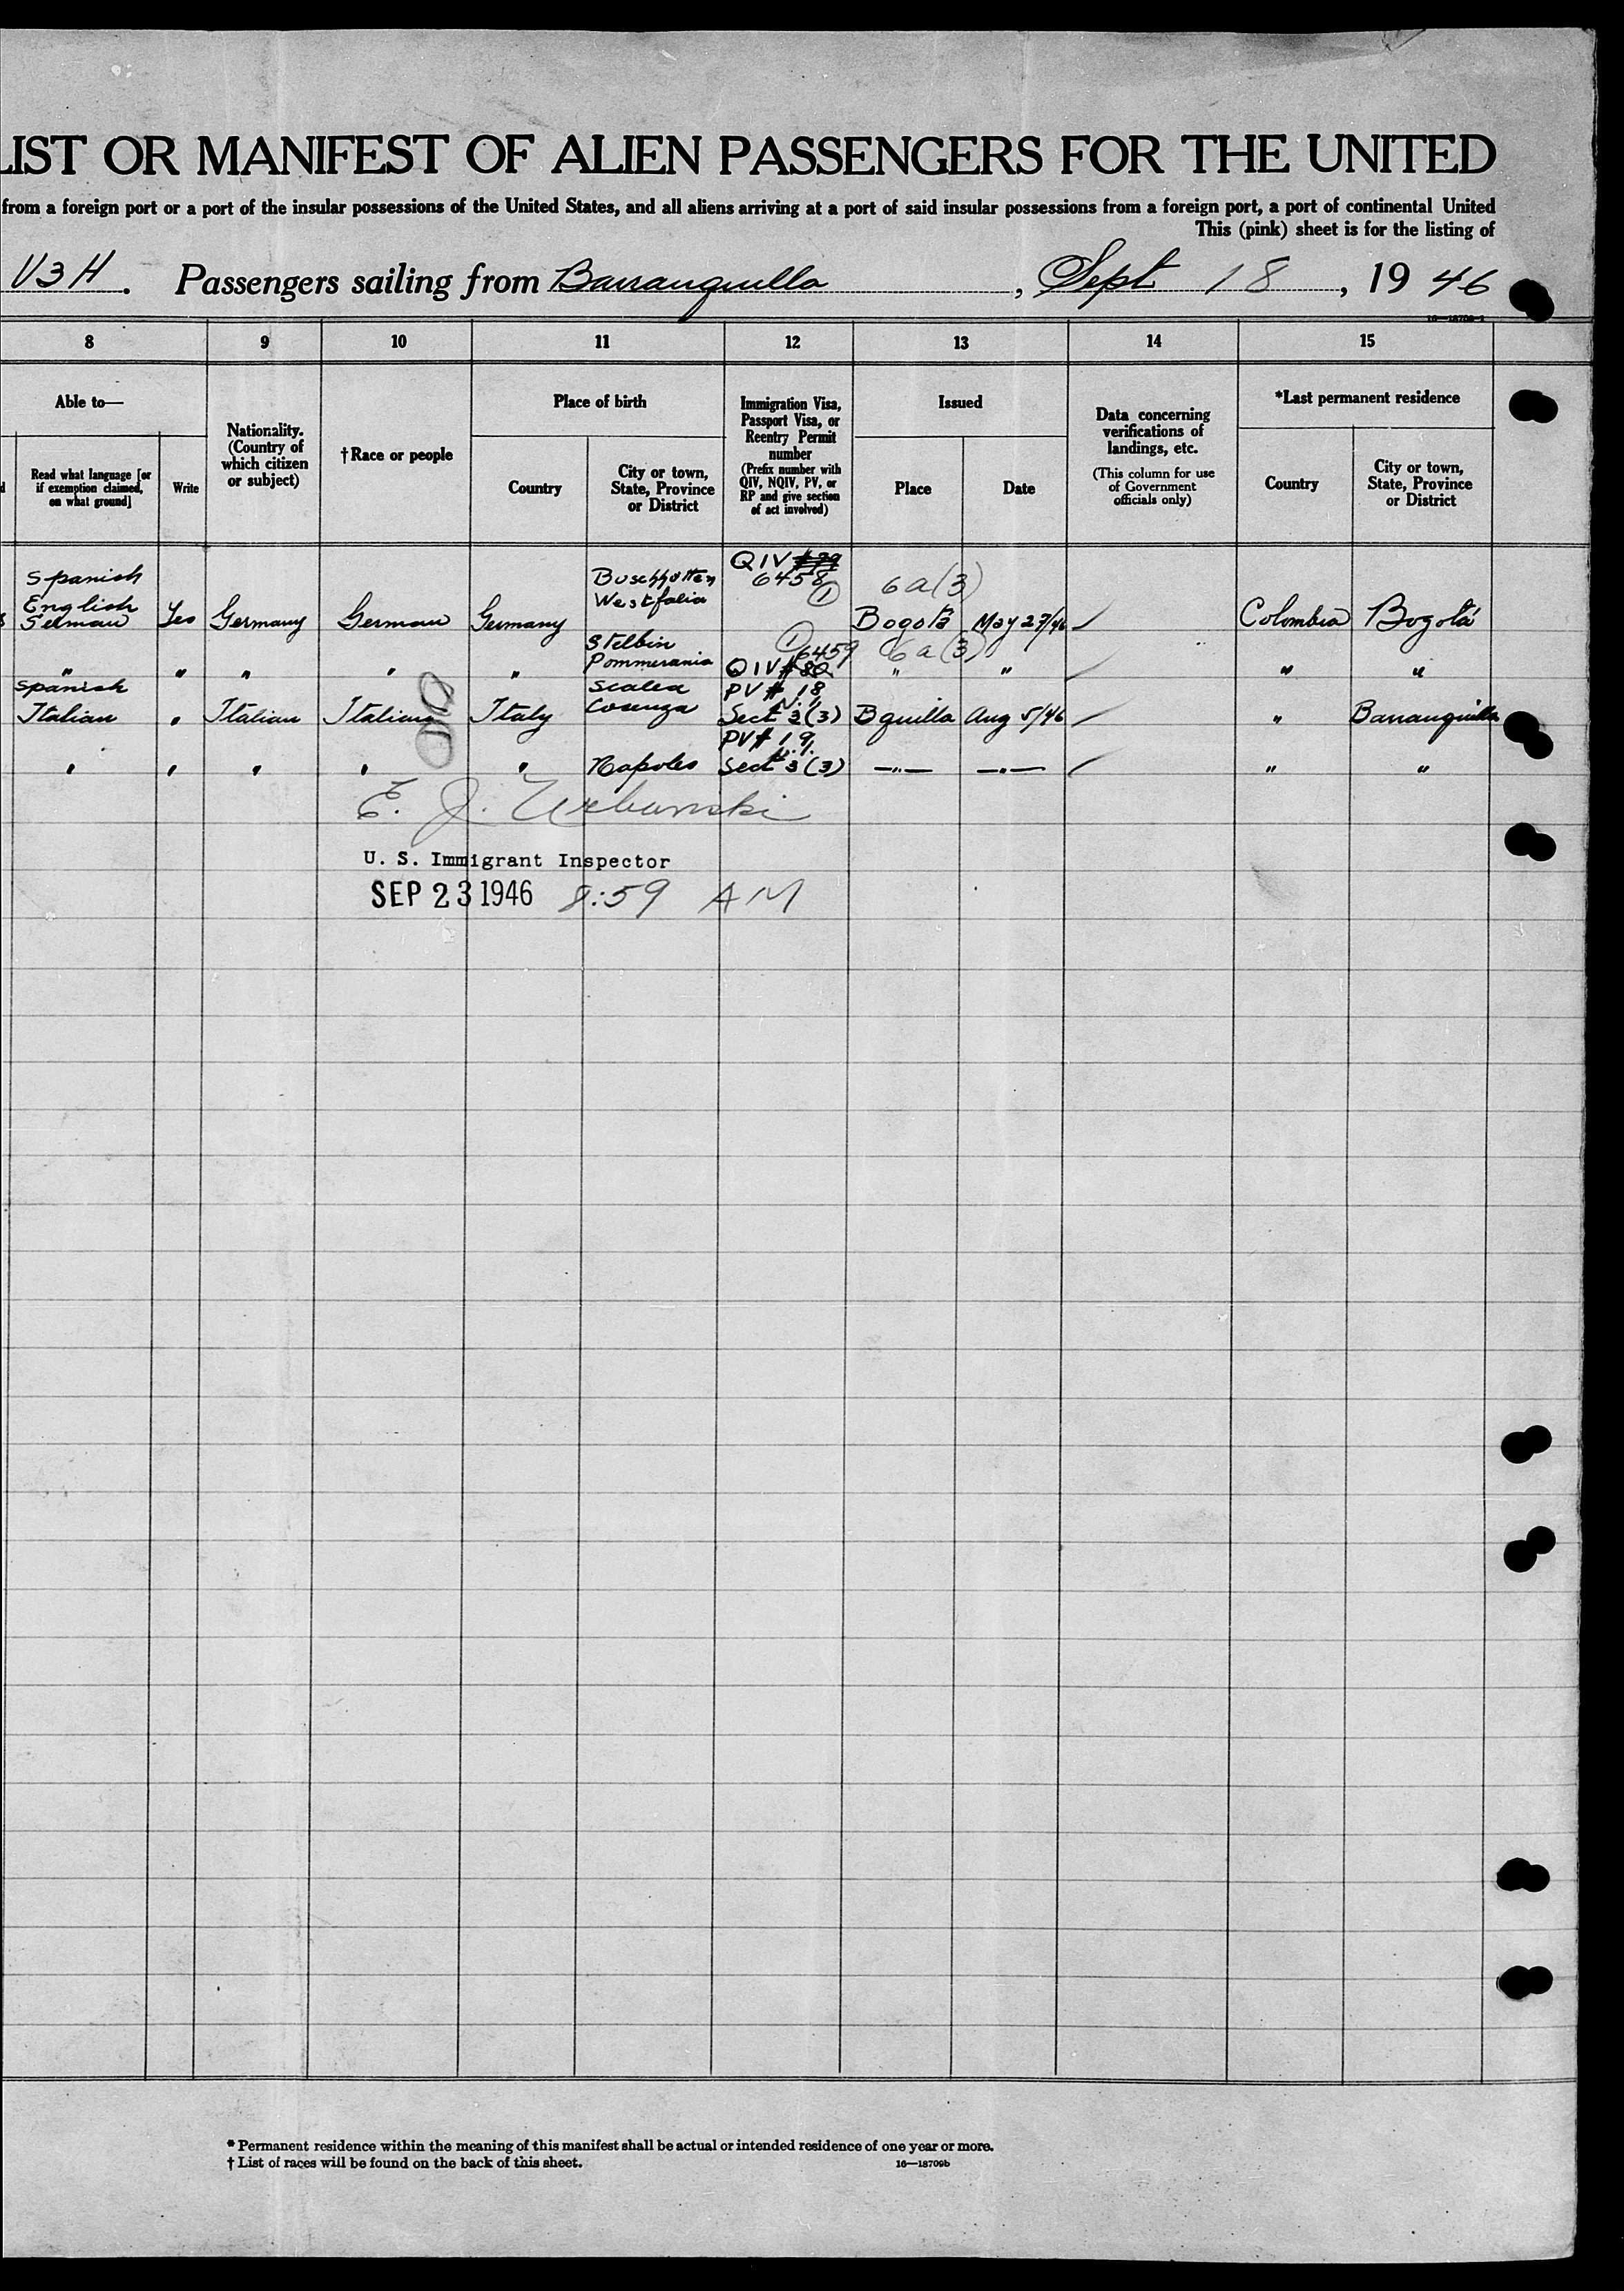 LIST OR MANIFEST OF ALIEN PASSENGERS FOR THE UNITED
from a foreign port or a port of the insular possessions of the United States, and all aliens arriving at a port of said insular possessions from a foreign port, a port of continental United
This (pink) sheet is for the listing of
V3H. Passengers sailing from Barranquilla, Sept 18, 19 46
16—18709-1
8 9 10 11 12 13 14 15
Able to—
Read what language [or if exemption claimed, on what ground]
Write
Nationality. (Country of which citizen or subject)
†Race or people
Place of birth
Country
City or town, State, Province or District
Immigration Visa, Passport Visa, or Reentry Permit number
(Prefix number with QIV, NQIV, PV, or RP and give section of act involved)
Issued
Place
Date
Data concerning verifications of landings, etc.
(This column for use of Government officials only)
*Last permanent residence
Country
City or town, State, Province or District
Spanish Buschhotten QIV
English Westfalia 6458 1 6a(3)
German Yes Germany German Germany Bogotá May 27/46 Colombia Bogotá
Stelbin 1 6459 6a(3)
" " " " " Pommerania QIV # " " " "
Spanish Scalea PV # 18
Italian " Italian Italian Italy Cosenza Sect 3(3) Bquilla Aug 5/46 " Barranquilla
PV# 19
" " " " " Napoles Sect 3(3) —"— —"— " "
E. J. Urbanski
U. S. Immigrant Inspector
SEP 23 1946 8:59 AM
* Permanent residence within the meaning of this manifest shall be actual or intended residence of one year or more.
† List of races will be found on the back of this sheet.
16—18709b